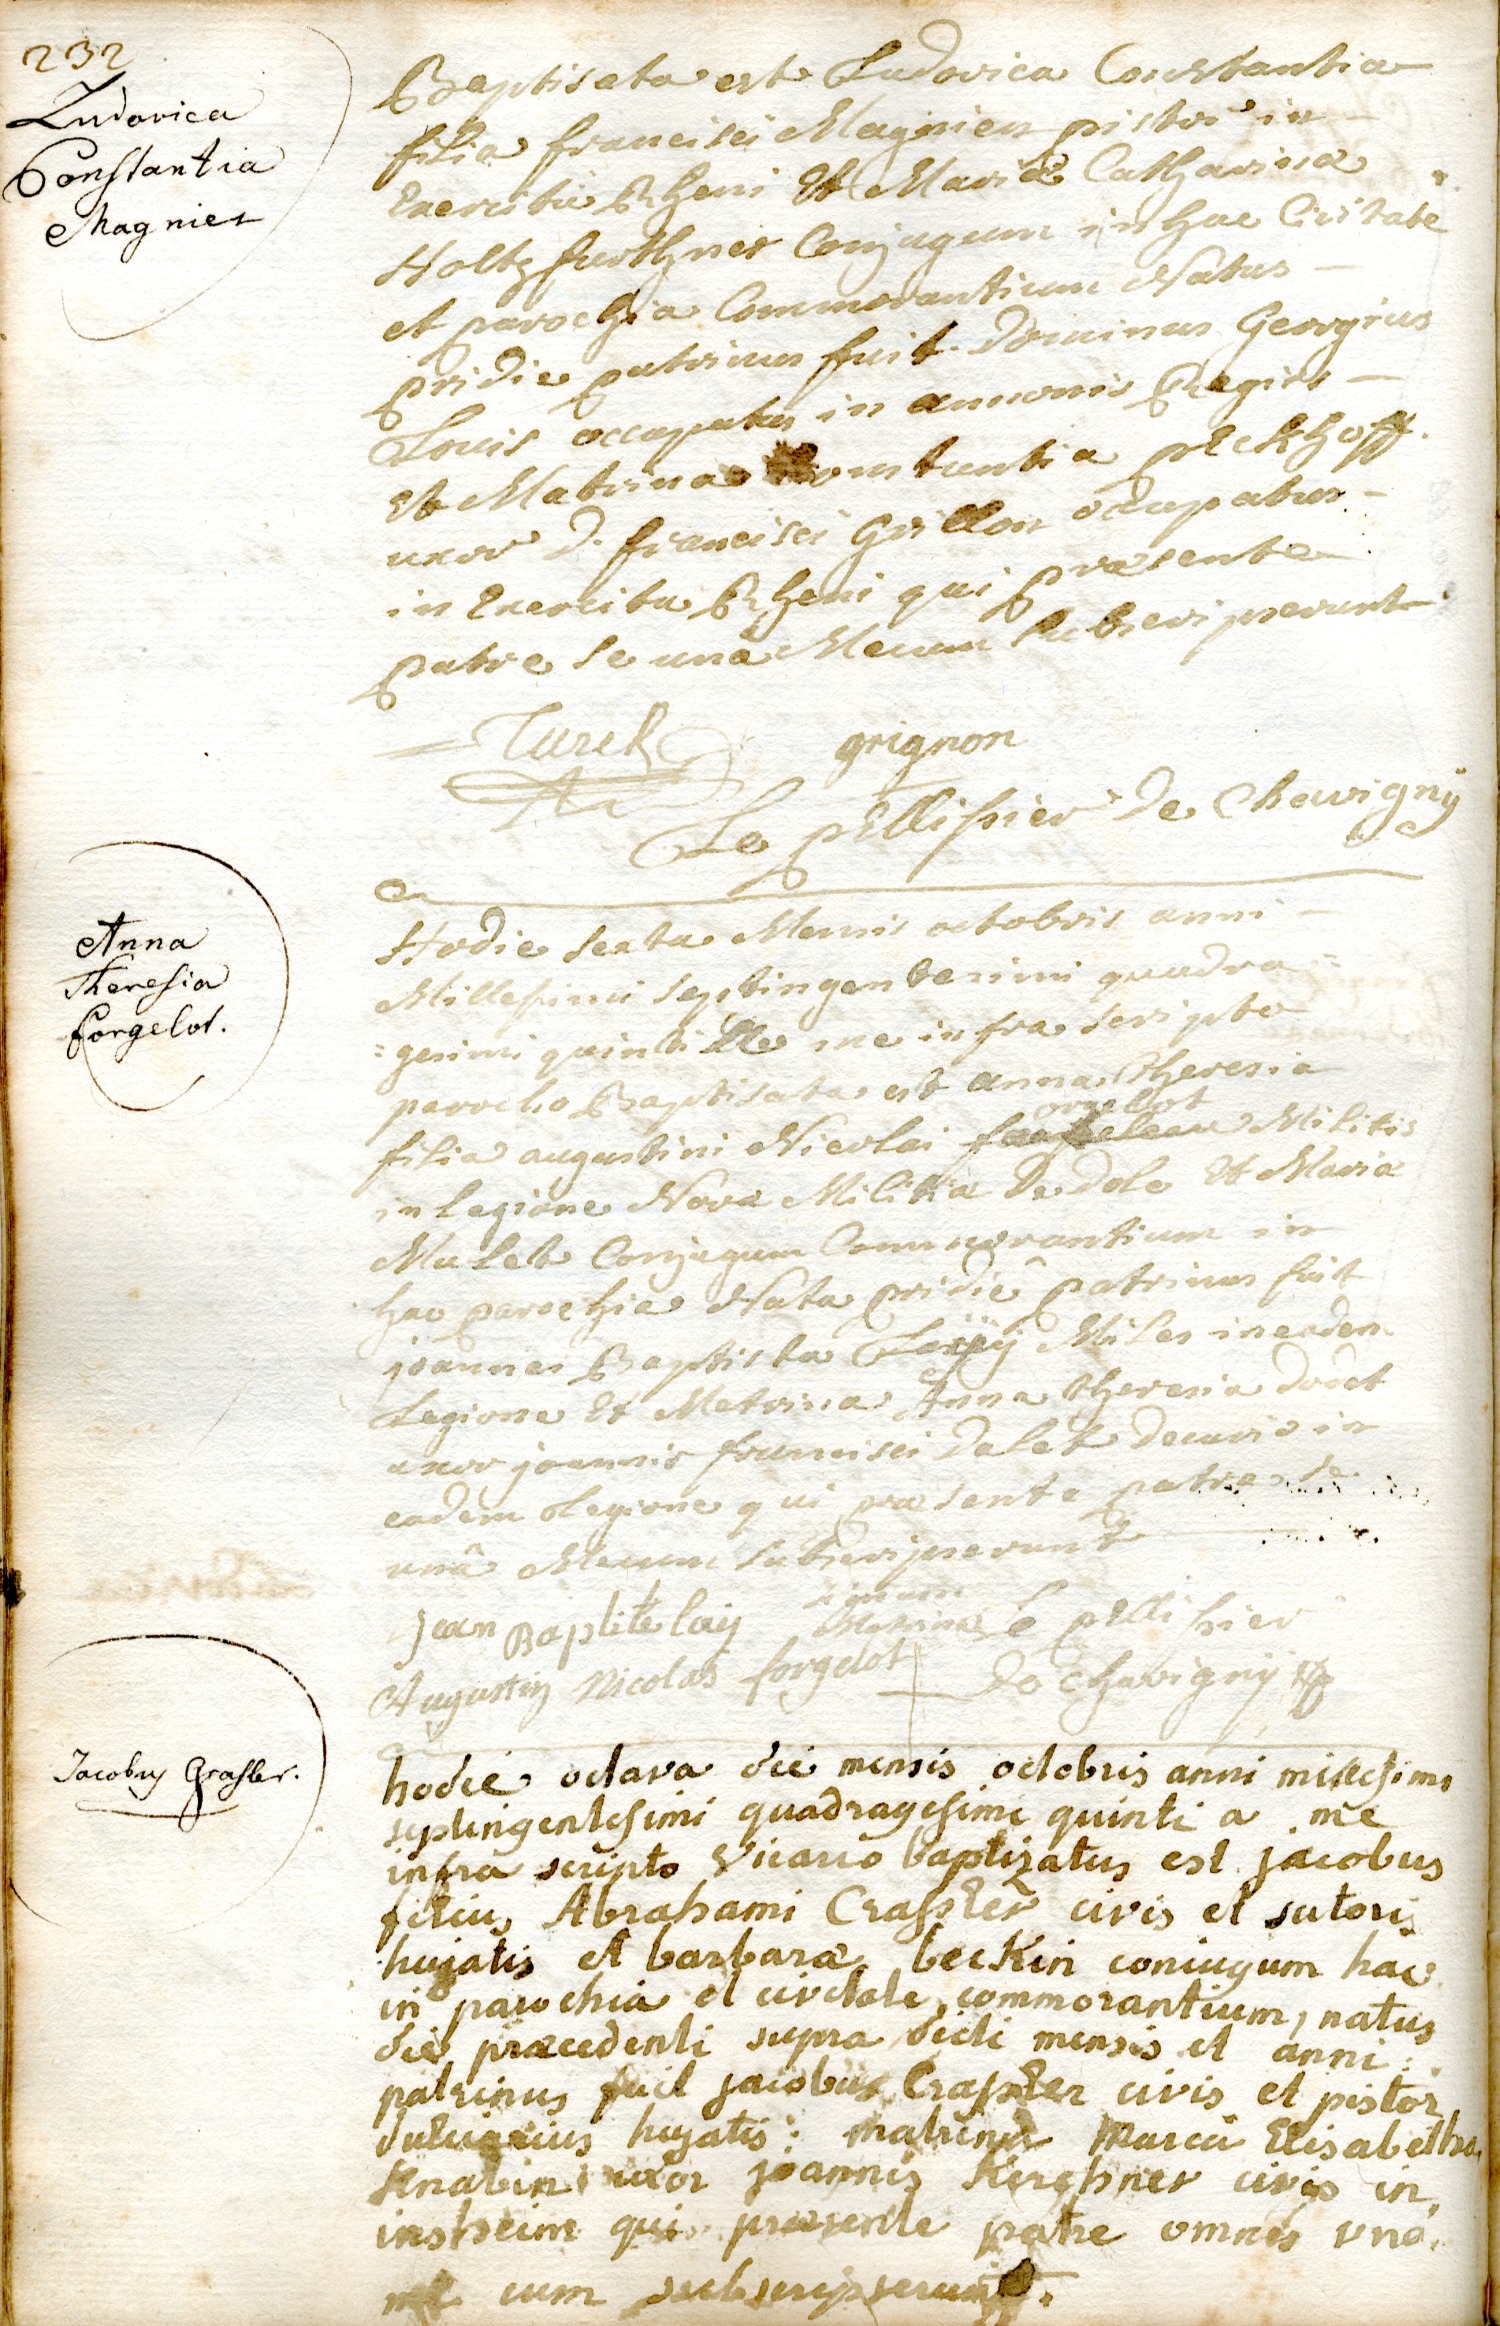 232
Ludovica
Constantia
Magnier
Baptisata est Ludovica Constantia
filia francisci Magnier pistor in
Exercitu Rheni Et Mariæ Catharina
Holtzfurthner Conjugum in hac Civitate
et parochia Commorantium Natus
pridie patrinus fuit Dominus Georgius
Louis occupatus in annonis Regiis
Et Matrina Constantia peckhoff
uxor D. francisci Grillon occupatus
in Exercitu Rheni qui præsente
patre se unâ Mecum subscripserunt
Turck grignon
Le pellissier De Chauvigny
Anna
Theresia
forgelot.
Hodie sexta Mensis octobris anni
Millesimi septingentesimi quadra=
=gesimi quinti a me infra scripto
parocho Baptisata est anna theresia
orgelot
filia augustini Nicolai Militis
in legione Novæ Militiæ De dole Et Maria
Mulet Conjugum Commorantium in
hac parochia Nata pridie patrinus fuit
joannes Baptista Laÿ Miles in eadem
Legione Et Matrina Anna theresia
uxor joannis francisci Dalet Decurio in
eadem Legione qui præsente patre se
unâ Mecum subscripserunt
jean Baptite laij signum Matrinæ Le pellissier
Augustin Nicolas forgelot De Chavignij
Jacobus Grassler.
hodie octava die mensis octobris anni millesimi
septingentesimi quadragesimi quinti a me
infra scripto vicario baptizatus est jacobus
filius Abrahami Crassler civis et sutoris
hujatis et barbaræ beckin coniugum hac
in parochia et civitate commorantium, natus
die præcedenti supra dicti mensis et anni
patrinus fuit jacobus Crassler civis et pistor
dulciarius hujatis: matrina Maria Elisabetha
Knabin uxor joannis Kirchner civis in
insheim qui præsente patre omnes unâ
me cum subscripserunt.